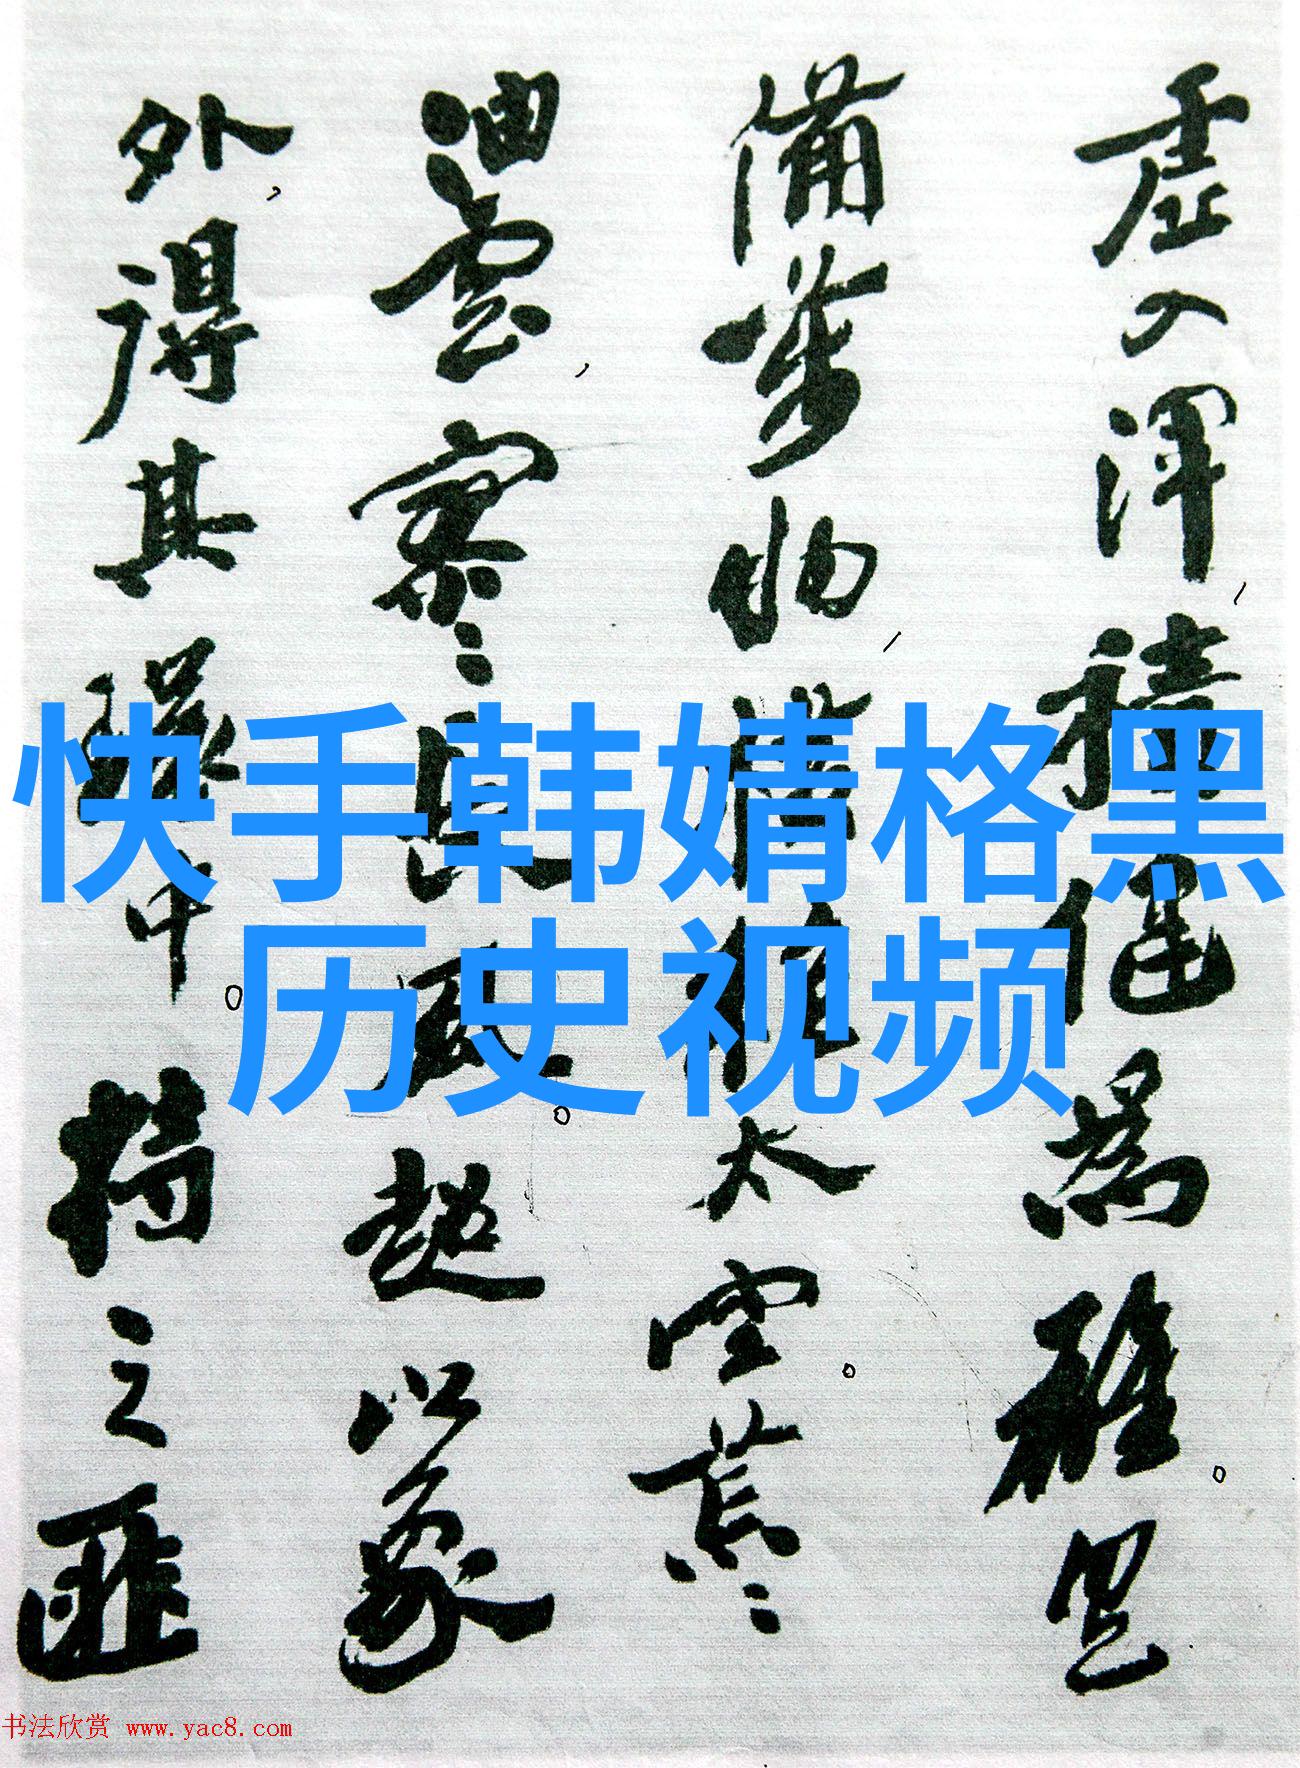 虚入浑，积健为雄。具
备万物，横绝太空。荒
荒油云，寥寥长风。超以象
外，得其环中。持之匪
快手韩婧格黑
历史视频
书法欣赏 www.yac8.com